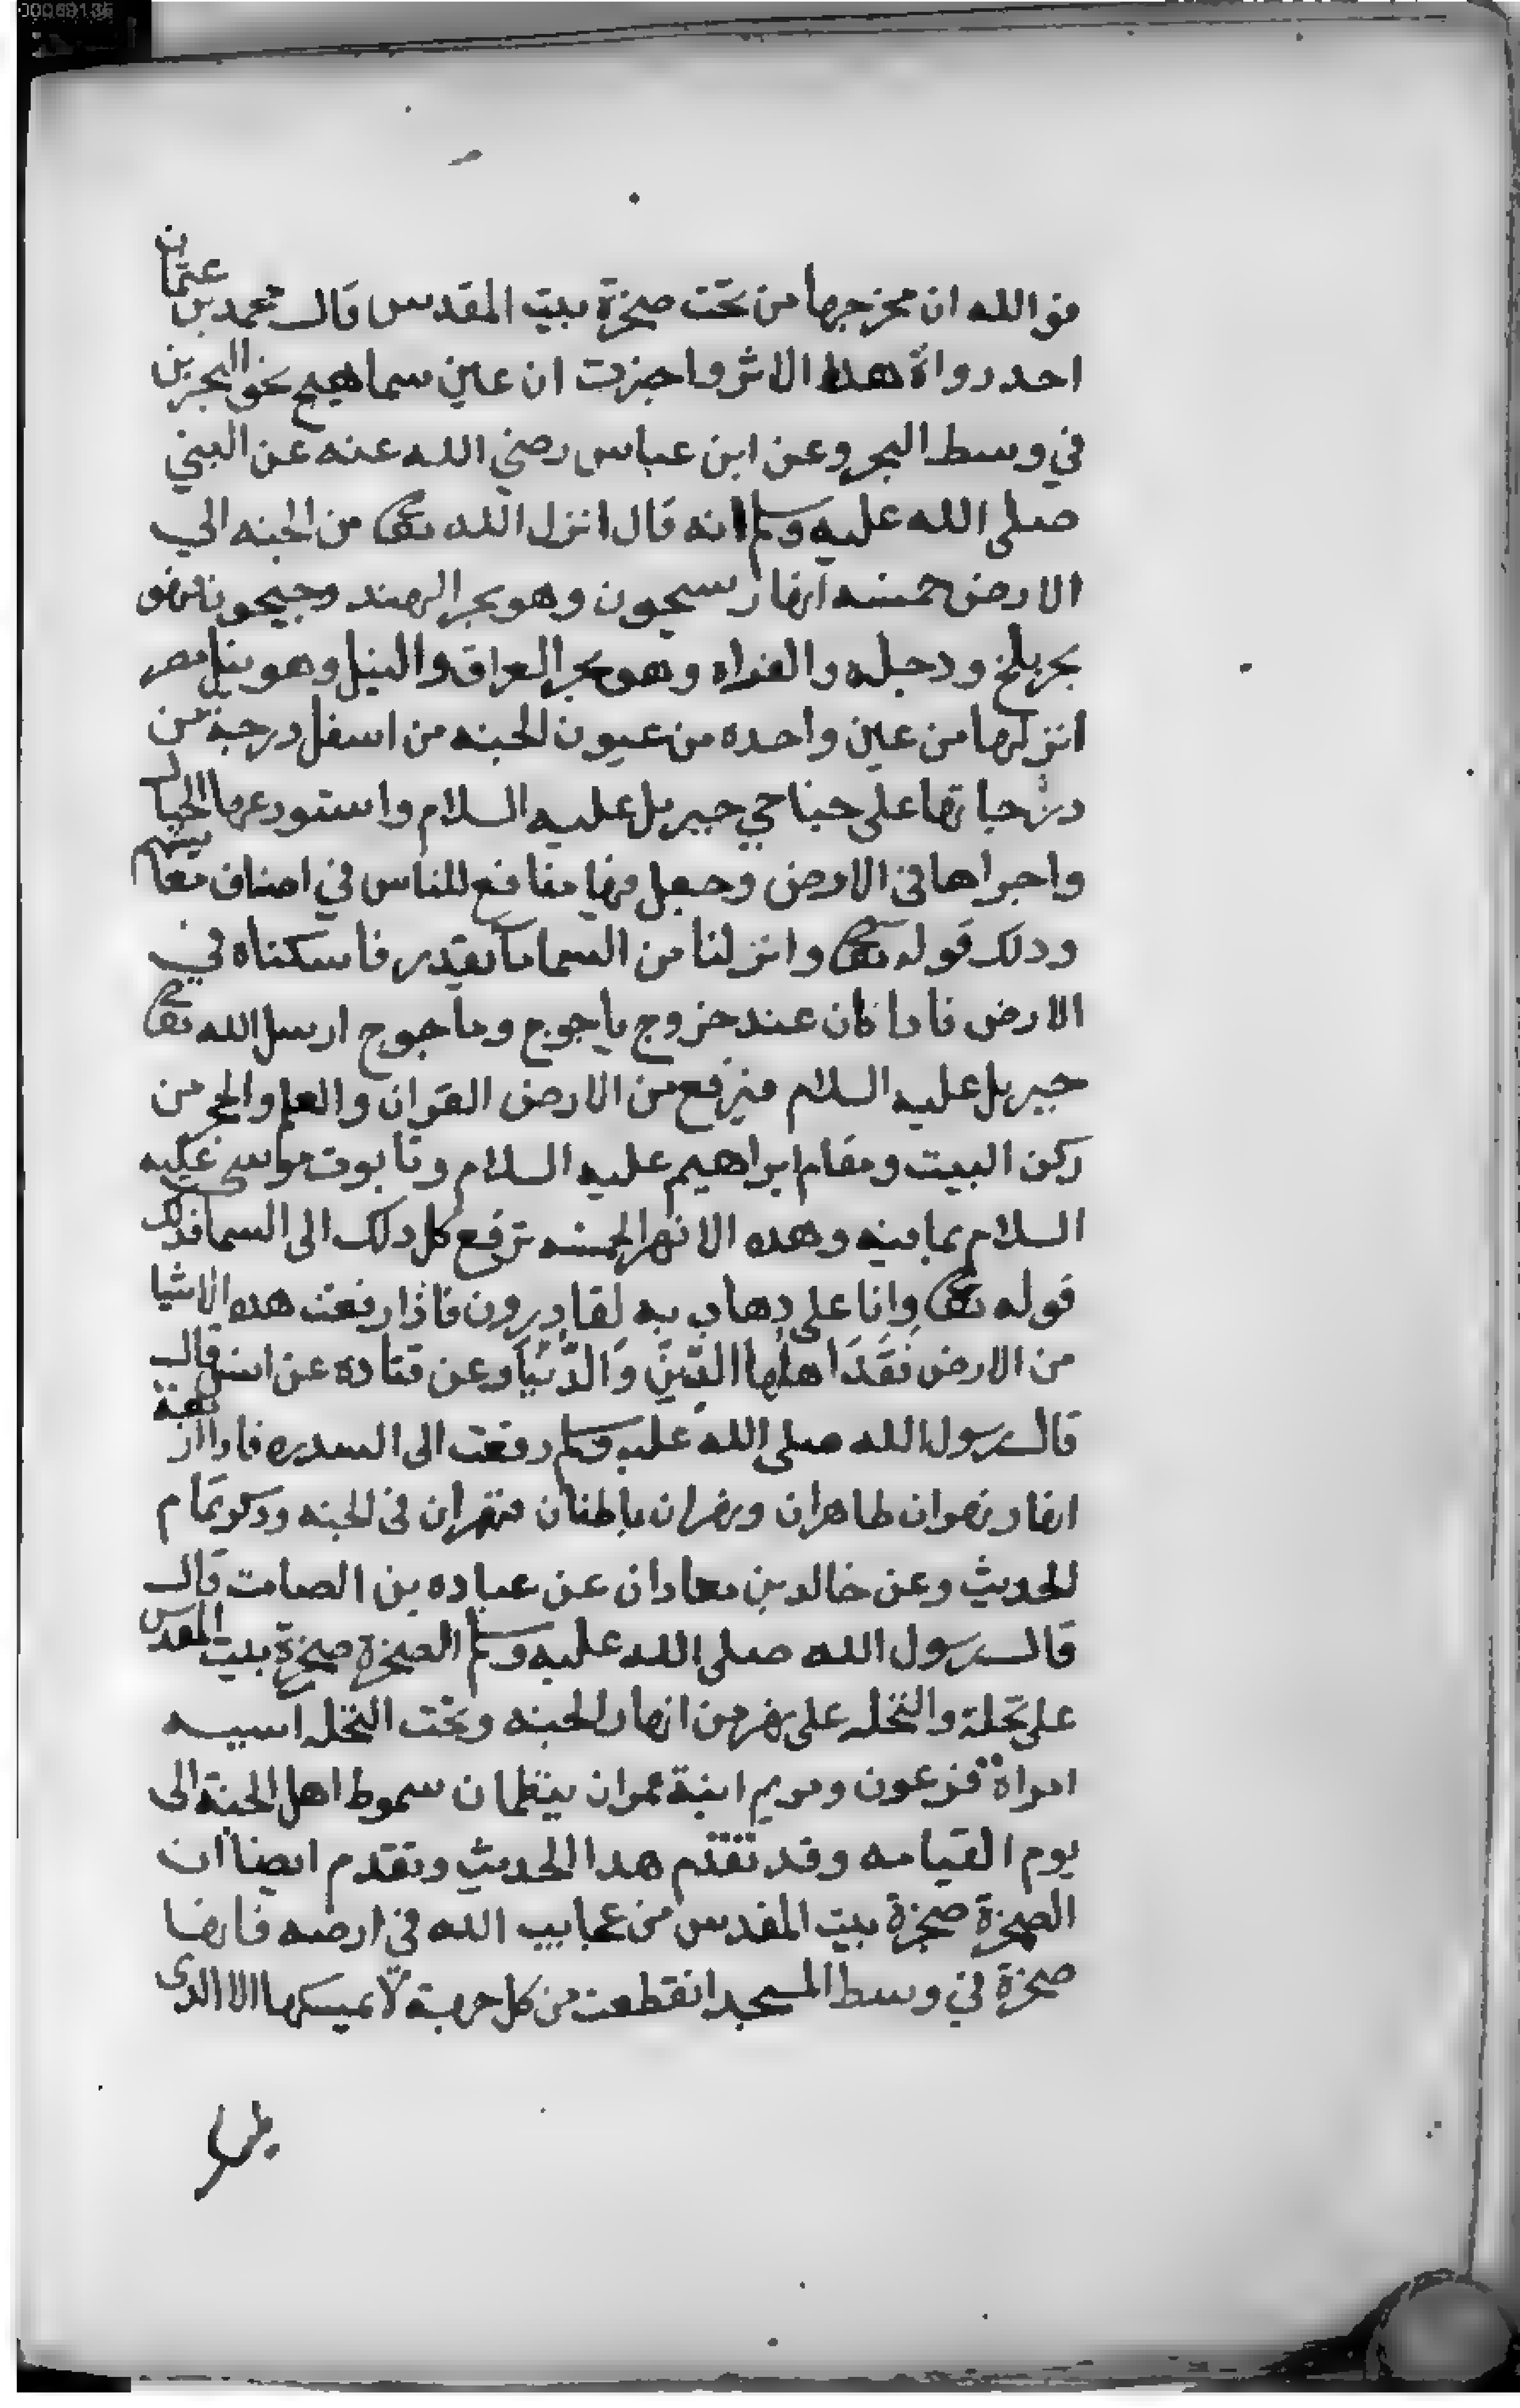 00069135
فوالله ان مخرجها من تحت صخرة بيت المقدس قال محمد بن عثمان
احد رواة هذا الاثر واخبرت ان عين سماهيج نحو البحرين
في وسط البحر وعن ابن عباس رضي الله عنه عن النبي
صلى الله عليه وسلم انه قال انزل الله تعالى من الجنه الي
الارض خمسه انهار سيحون وهو بحر الهند وجيحون وهو
بحر بلخ ودجله والفراه وهو بحر العراق والنيل وهو نيل مصر
انزلها من عين واحده من عيون الجنه من اسفل درجة من
درجاتها على جناحي جبريل عليه السلام واستودعها الجبال
واجراها في الارض وجعل فيها منافع للناس في اصناف معايشهم
ودلك قوله تعالى وانزلنا من السما ماً بقدر فاسكناه في
الارض فادا كان عند خروج ياجوج وماجوج ارسل الله تعالى
جبريل عليه السلام فيرفع من الارض القران والعلم والحجر من
ركن البيت ومقام ابراهيم عليه السلام وتابوت موسى عليه
السلام بما فيه وهده الانهر الخمسه ترفع كل دلك الى السما فدلك
قوله تعالى وانا على دهاب به لقادرون فاذا رفعت هده الاشيا
من الارض فَقَدَ اهلها الدِّينَ وَالدُّنْيَا وعن قتاده عن انس قال
قال رسول الله صلى الله عليه وسلم رفعت الى السدره فادا اربعة
انهار نهران ظاهران ونهران باطنان فنهران في الجنه ودكر تمام
الحديث وعن خالد بن معادان عن عباده بن الصامت قال
قال رسول الله صلى الله عليه وسلم الصخرة صخرة بيت المقدس
على نخلة والنخله على نهر من انهار الجنه وتحت النخله اسيه
امراة فرعون ومريم ابنة عمران ينظمان سموط اهل الجنة الى
يوم القيامه وقد تقدم هدا الحديث وتقدم ايضا ان
الصخرة صخرة بيت المقدس من عجايب الله في ارضه فانها
صخرة في وسط المسجد انقطعت من كل جهة لا يمسكها الا الدى